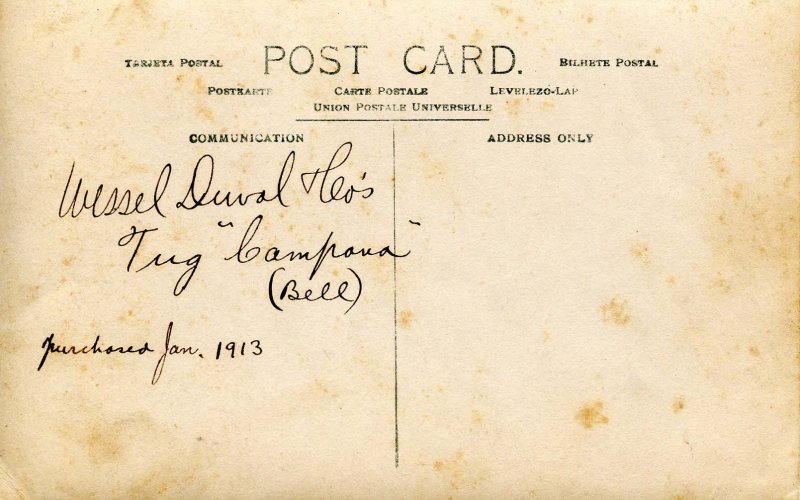 POST CARD.
TARJETA POSTAL
BILHETE POSTAL
POSTKARTE
CARTE POSTALE
LEVELEZO-LAP
UNION POSTALE UNIVERSELLE
COMMUNICATION
ADDRESS ONLY
Wessel Duval & Co's
Tug "Campana"
(Bell)
purchased Jan. 1913